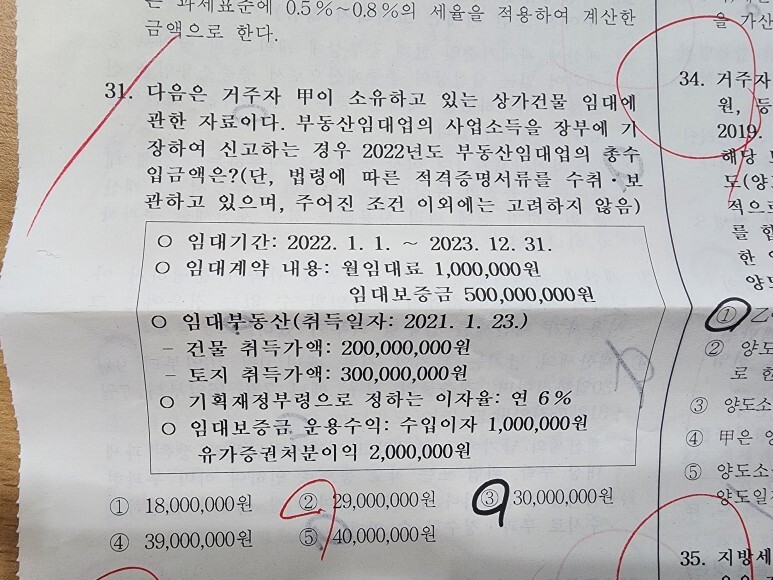 는 과세표준에 0.5%~0.8%의 세율을 적용하여 계산한
금액으로 한다.
31. 다음은 거주자 甲이 소유하고 있는 상가건물 임대에
관한 자료이다. 부동산임대업의 사업소득을 장부에 기
장하여 신고하는 경우 2022년도 부동산임대업의 총수
입금액은?(단, 법령에 따른 적격증명서류를 수취·보
관하고 있으며, 주어진 조건 이외에는 고려하지 않음)
○ 임대기간: 2022. 1. 1. ~ 2023. 12. 31.
○ 임대계약 내용: 월임대료 1,000,000원
임대보증금 500,000,000원
○ 임대부동산(취득일자: 2021. 1. 23.)
- 건물 취득가액: 200,000,000원
- 토지 취득가액: 300,000,000원
○ 기획재정부령으로 정하는 이자율: 연 6%
○ 임대보증금 운용수익: 수입이자 1,000,000원
유가증권처분이익 2,000,000원
① 18,000,000원 ② 29,000,000원 ③ 30,000,000원
④ 39,000,000원 ⑤ 40,000,000원
을 가산
34. 거주자
원, 등
2019.
해당
도(양
적으로
를 합
한
양도
① 乙
② 양도
로 한
③ 양도소
④ 甲은
⑤ 양도소
양도일
35. 지방세